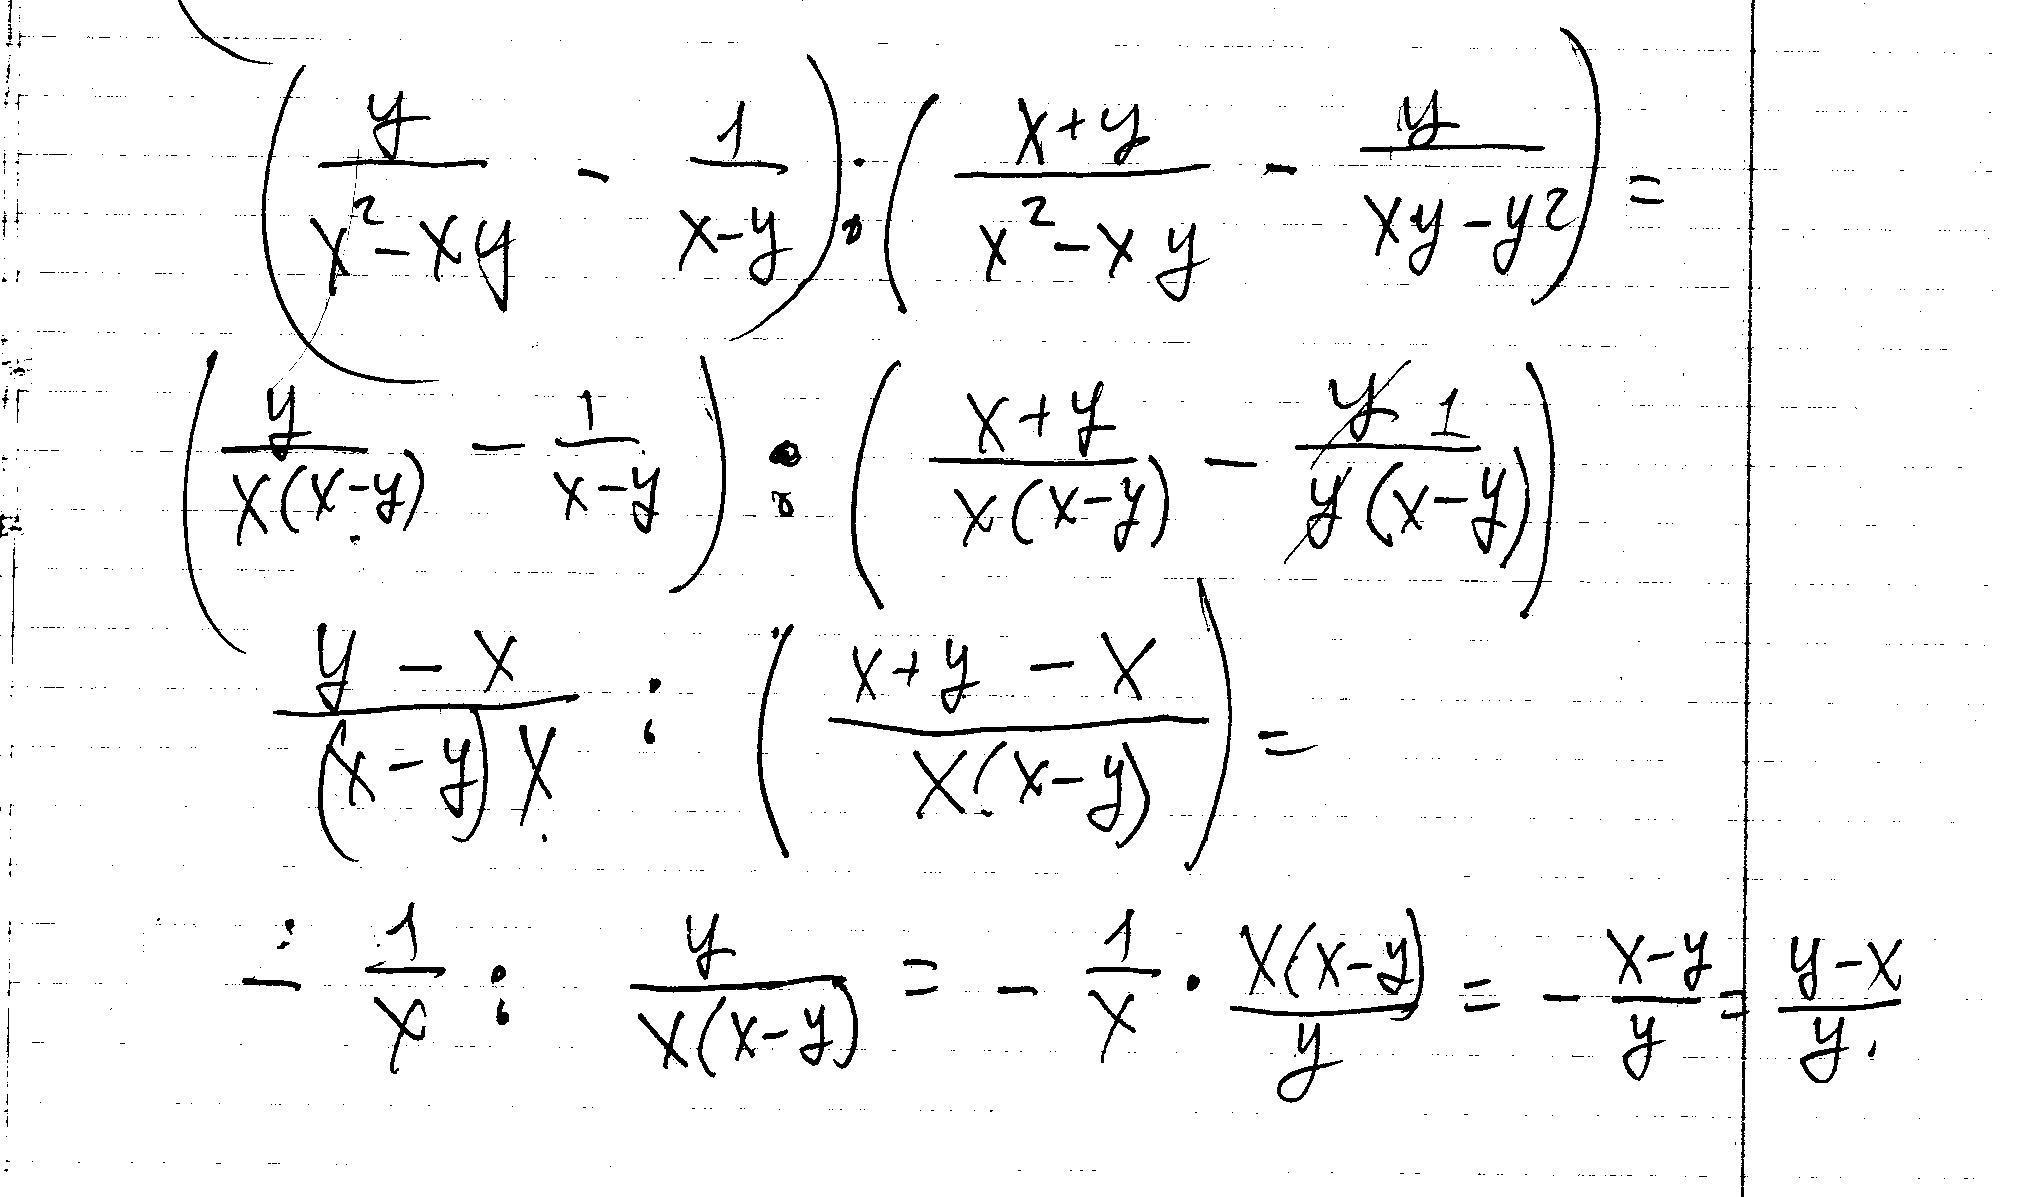 (y/(x²-xy) - 1/(x-y)) : ((x+y)/(x²-xy) - y/(xy-y²)) =
(y/(x(x-y)) - 1/(x-y)) : ((x+y)/(x(x-y)) - y 1/(y(x-y)))
(y-x)/((x-y)x) : ((x+y-x)/(x(x-y))) =
- 1/x : y/(x(x-y)) = - 1/x · x(x-y)/y = - (x-y)/y = (y-x)/y.